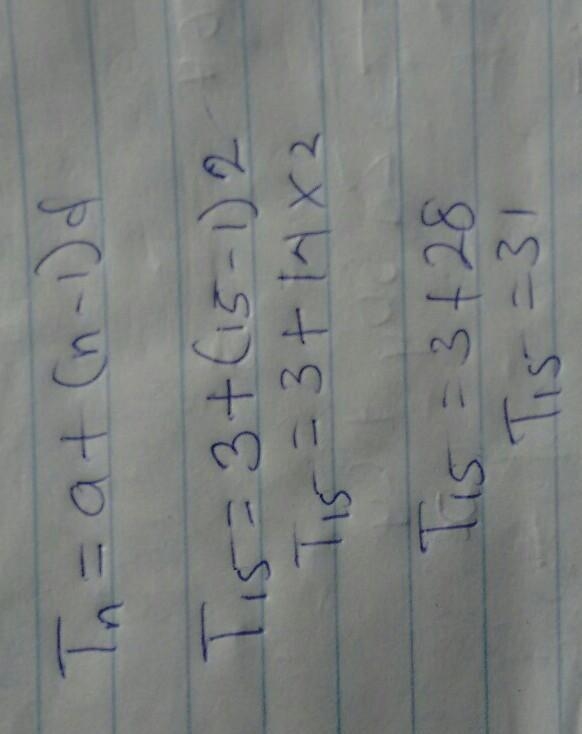 Tn = a + (n-1)d
T15 = 3 + (15-1)2
T15 = 3 + 14 x 2
T15 = 3 + 28
T15 = 31